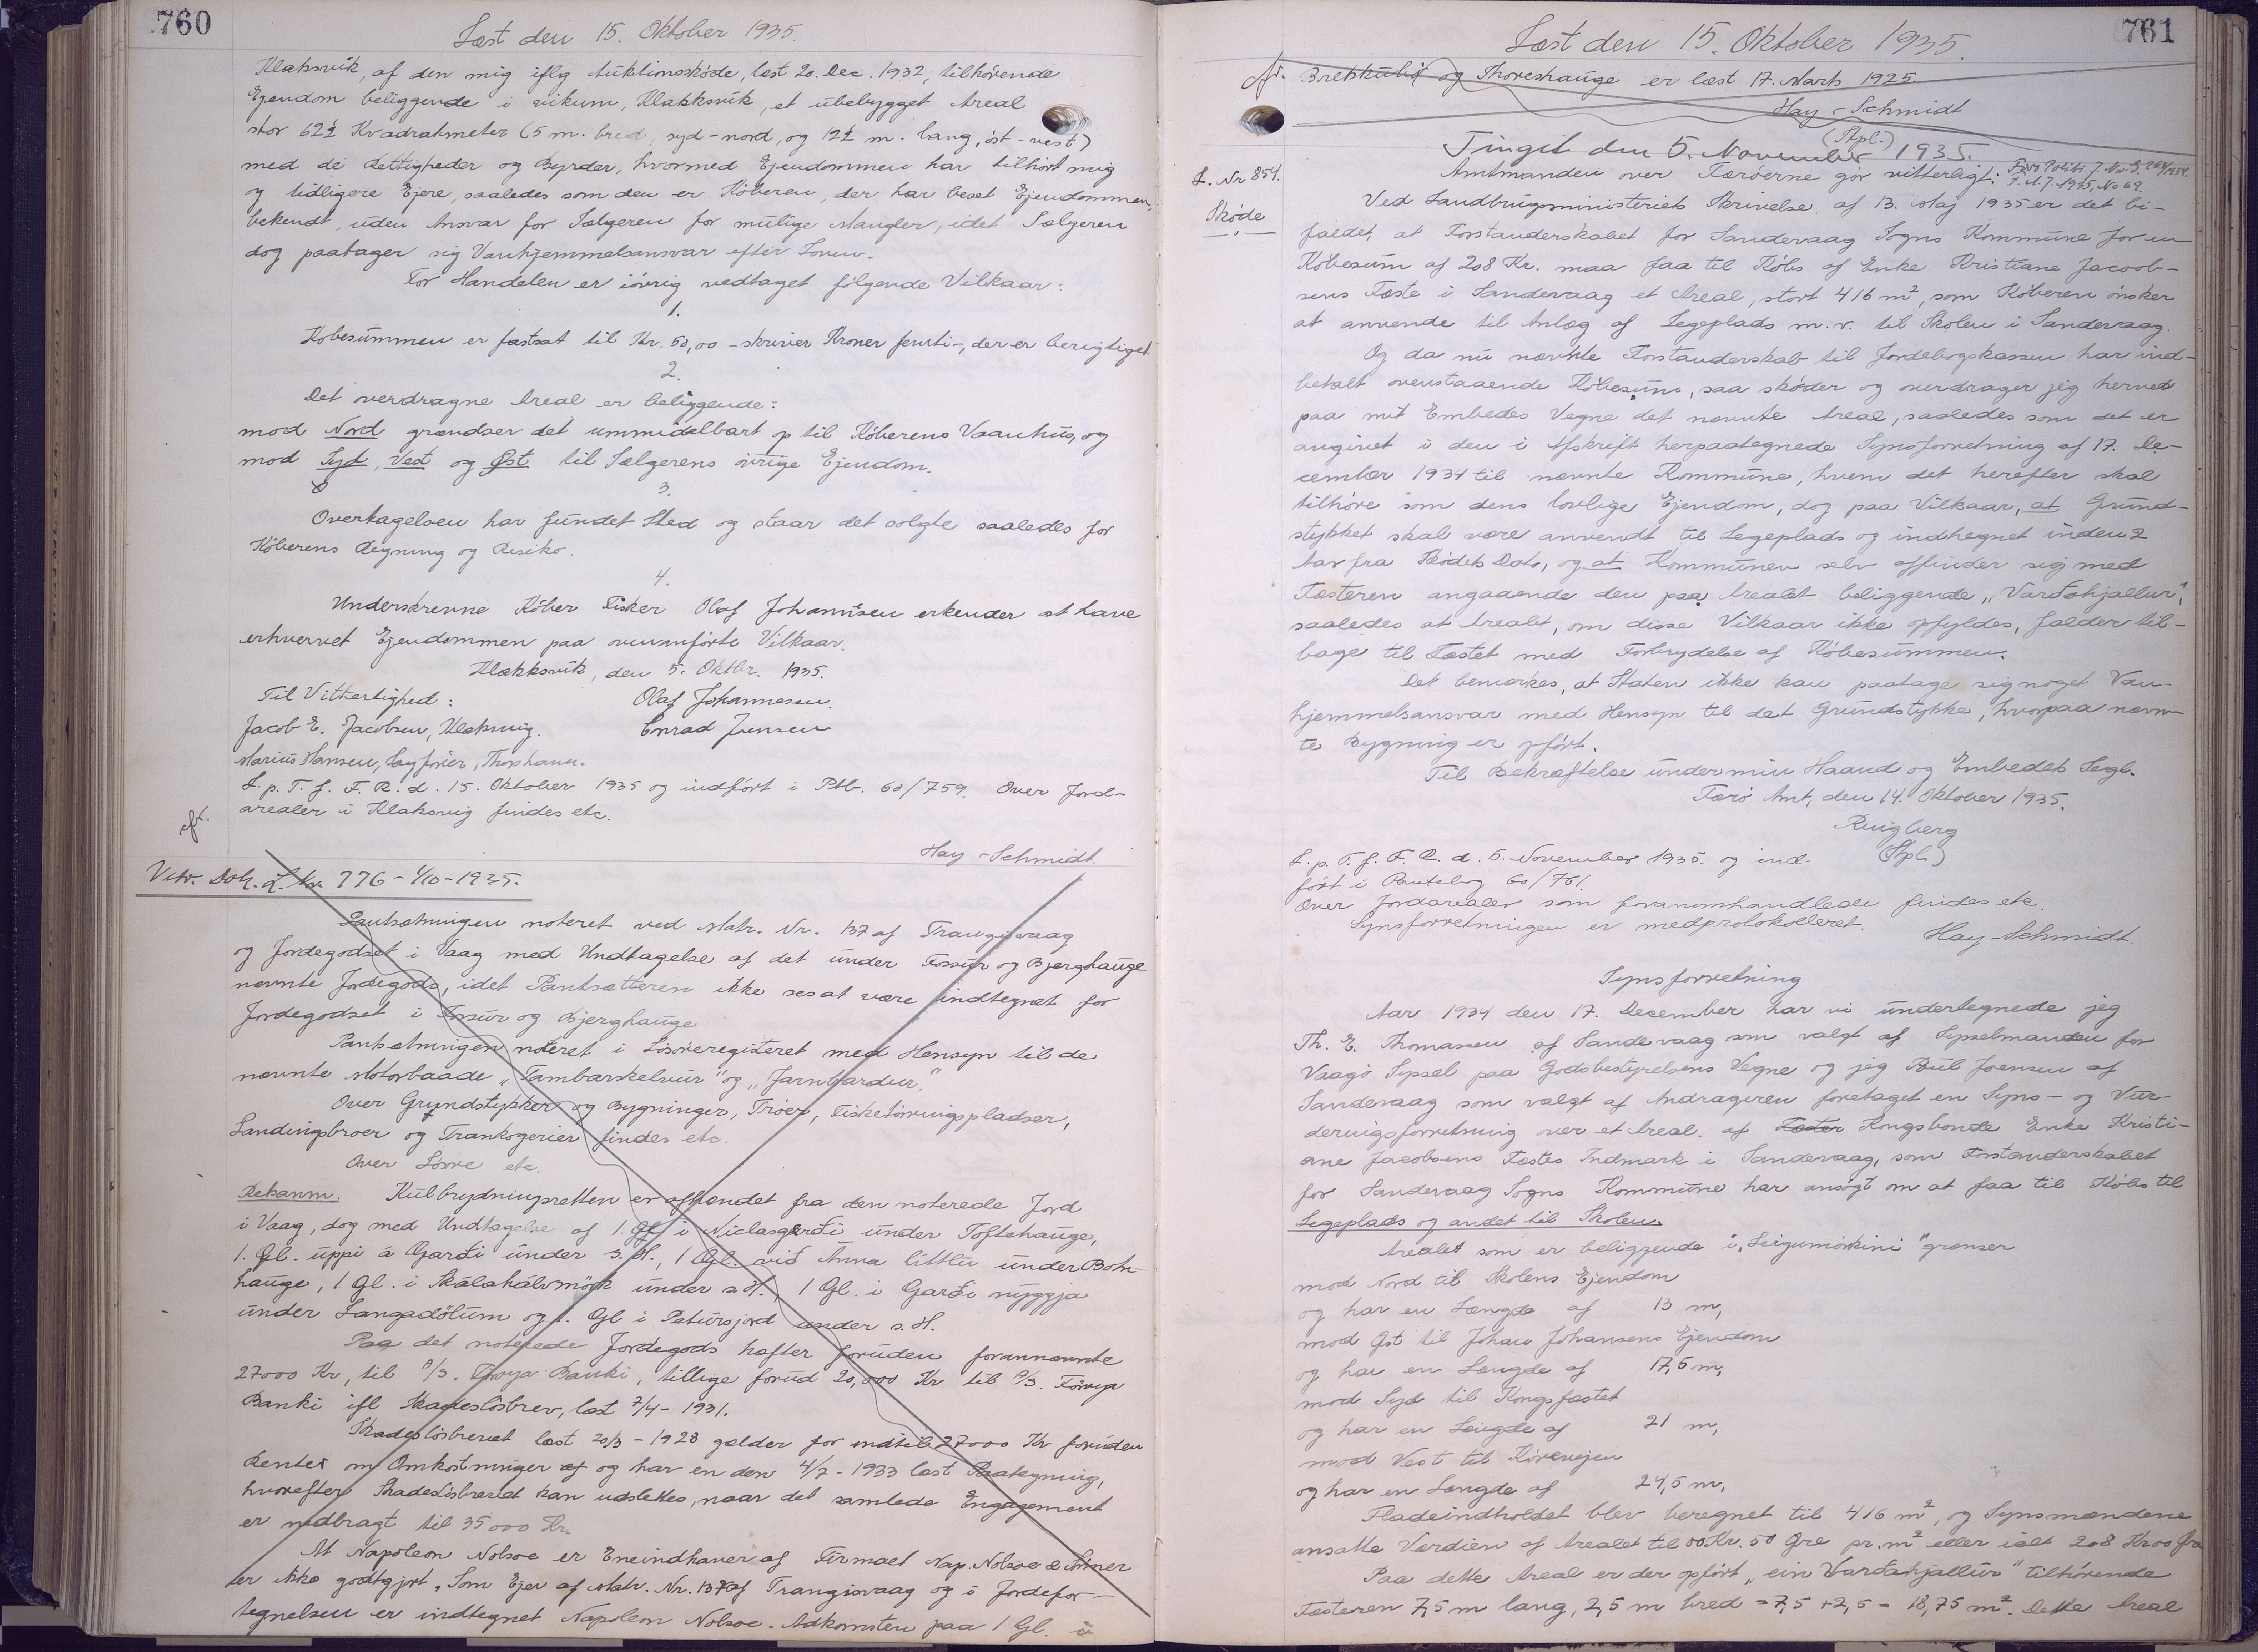 760
Læst den 15. Oktober 1935.
Klaksvik, af den mig iflg Auktionsskøde, læst 20. Dec. 1932, tilhørende
Ejendom beliggende i vikum, Klakksvik, et ubebygget Areal
stor 62½ Kvadratmeter (5 m. bred, syd-nord, og 12½ m. lang, øst-vest)
med de Rettigheder og Byrder, hvormed Ejendommen har tilhørt mig
og tidligere Ejere, saaledes som den er Køberen, der har beset Ejendommen,
bekendt, uden Ansvar for Sælgeren for mulige Mangler, idet Sælgeren
dog paatager sig Vanhjemmelsansvar efter Loven.
For Handelen er iøvrig vedtaget følgende Vilkaar:
1.
Købesummen er fastsat til Kr. 50,00 - skriver Kroner femti-, der er berigtiget
2.
Det overdragne Areal er beliggende:
mod Nord grændser det ummidelbart op til Køberens Vaanhus, og
mod Syd, Vest og Øst til Sælgerens øvrige Ejendom.
3.
Overtagelsen har fundet Sted og staar det solgte saaledes for
Køberens Regning og Risiko.
4.
Underskrevne Køber Fisker Olaf Johannesen erkender at have
erhvervet Ejendommen paa ovenanførte Vilkaar.
Klakksvik, den 5. Oktbr. 1935.
Til Vitterlighed: Olaf Johannesen.
Jacob E. Jacobsen, Klaksvig. Conrad Joensen
Marius Hansen, Sagfører, Thorshavn.
L. p. T. f. F. R. d. 15. Oktober 1935 og indført i Ptb. 60/759. Over Jord-
arealer i Klaksvig findes etc.
Hay-Schmidt.
Vedr. Dok. L. Nr. 776 - 1/10 - 1935.
Pantsætningen noteret ved Matr. Nr. 137 af Trangisvaag
og Jordegodset i Vaag med Undtagelse af det under Fossur og Bjerghauge
nævnte Jordegods, idet Pantsætteren ikke ses at være indtegnet for
Jordegodset i Fossur og Bjerghauge
Pantsætningen noteret i Løsøreregisteret med Hensyn til de
nævnte Motorbaade „Tambarskelvur" og „Jarnbardur."
Over Grundstykker og Bygninger, Trøer, Fisketørringspladser,
Landingsbroer og Trankogerier findes etc.
Over Løsøre etc.
Rekanm. Kulbrydningsretten er afhændet fra den noterede Jord
i Vaag, dog med Undtagelse af 1. Gl. i Niclasgørdi under Toftehauge,
1. Gl. uppi á Gardi under s. H., 1 Gl. við Anna littlu under Botn-
hauge, 1 Gl. i Skálahálvmørk under s. H., 1 Gl. i Gardi nyggja
under Langadølum og 1. Gl i Petursjord under s. H.
Paa det noterede Jordegods hæfter foruden forannævnte
27000 Kr, til A/S. Føroya Banki, tillige forud 20,000 Kr til A/S. Føroya
Banki ifl Skadesløsbrev, læst 7/4 - 1931.
Skadesløsbrevet læst 20/3 - 1928 gælder for indtil 27000 Kr foruden
Renter om Omkostninger af og har en den 4/7 - 1933 læst Paategning,
hvorefter Skadesløsbrevet kan udslettes, naar det samlede Engagement
er nedbragt til 35000 Kr.
At Napoleon Nolsøe er Eneindhaver af Firmaet Nap. Nolsøe & Sønner
er ikke godtgjort. Som Ejer af Matr. Nr. 137 af Trangisvaag og i Jordefor-
tegnelsen er indtegnet Napoleon Nolsøe. Adkomsten paa 1 Gl. i
761
Læst den 15. Oktober 1935.
Brekkubø og Thoreshauge er læst 17. Marts 1925.
Hay-Schmidt
(Stpl.)
Tingit den 5. November 1935.
L. Nr 851.
Skøde
Amtmanden over Færøerne gør vitterligt:
Ved Landbrugsministeriets Skrivelse af 13. Maj 1935 er det bi-
faldet, at Forstanderskabet for Sandevaag Sogns Kommune for en
Købesum af 208 Kr. maa faa til Købs af Enke Kristiane Jacob-
sens Fæste i Sandevaag et Areal, stort 416 m², som Køberen ønsker
at anvende til Anlæg af Legeplads m.v. til Skolen i Sandevaag.
Og da nu nævnte Forstanderskab til Jordebogskassen har ind-
betalt ovenstaaende Købesum, saa skøder og overdrager jeg herved
paa mit Embedes Vegne det nævnte Areal, saaledes som det er
angivet i den i Afskrift herpaategnede Synsforretning af 17. De-
cember 1934 til nævnte Kommune, hvem det herefter skal
tilhøre som dens lovlige Ejendom, dog paa Vilkaar, at Grund-
stykket skal være anvendt til Legeplads og indhegnet inden 2
Aar fra Skødets Dato, og at Kommunen selv affinder sig med
Fæsteren angaaende den paa Arealet beliggende „Vardahjallur",
saaledes at Arealet, om disse Vilkaar ikke opfyldes, falder til-
bage til Fæstet med Forbrydelse af Købesummen.
Det bemærkes, at Staten ikke kan paatage sig noget Van-
hjemmelsansvar med Hensyn til det Grundstykke, hvorpaa nævn-
te Bygning er opført.
Til Bekræftelse under min Haand og Embedets Segl.
Færø Amt, den 14. Oktober 1935.
Ringberg
(Stpl.)
L. p. T. f. F. R. d. 5. November 1935. og ind-
ført i Pantebog 60/761.
Over Jordarealer som foranomhandlede findes etc.
Synsforretningen er medprotokolleret.
Hay-Schmidt.
Synsforretning
Aar 1934 den 17. December har vi undertegnede jeg
Th. E. Thomassen af Sandevaag som valgt af Sysselmanden for
Vaagø Syssel paa Godsbestyrelsens Vegne og jeg Poul Joensen af
Sandevaag som valgt af Andrageren foretaget en Syns- og Vur-
deringsforretning over et Areal. af Fæster Kongsbonde Enke Kristi-
ane Jacobsens Fæstes Indmark i Sandevaag, som Forstanderskabet
for Sandevaag Sogns Kommune har ansøgt om at faa til Købs til
Legeplads og andet til Skolen.
Arealet som er beliggende i „Leigumørkini" grænser
mod Nord til Skolens Ejendom
og har en Længde af 13 m,
mod Øst til Johan Johansens Ejendom
og har en Længde af 17,5 m,
mod Syd til Kongsfæstet
og har en Længde af 21 m,
mod Vest til Kørevejen
og har en Længde af 24,5 m,
Fladeindholdet blev beregnet til 416 m², og Synsmændene
ansatte Værdien af Arealet til 00 Kr. 50 Øre pr. m² eller ialt 208 Kr 00 Øre
Paa dette Areal er der opført „ein Vardahjallur" tilhørende
Fæsteren 7,5 m lang, 2,5 m bred = 7,5 + 2,5 = 18,75 m². Dette Areal